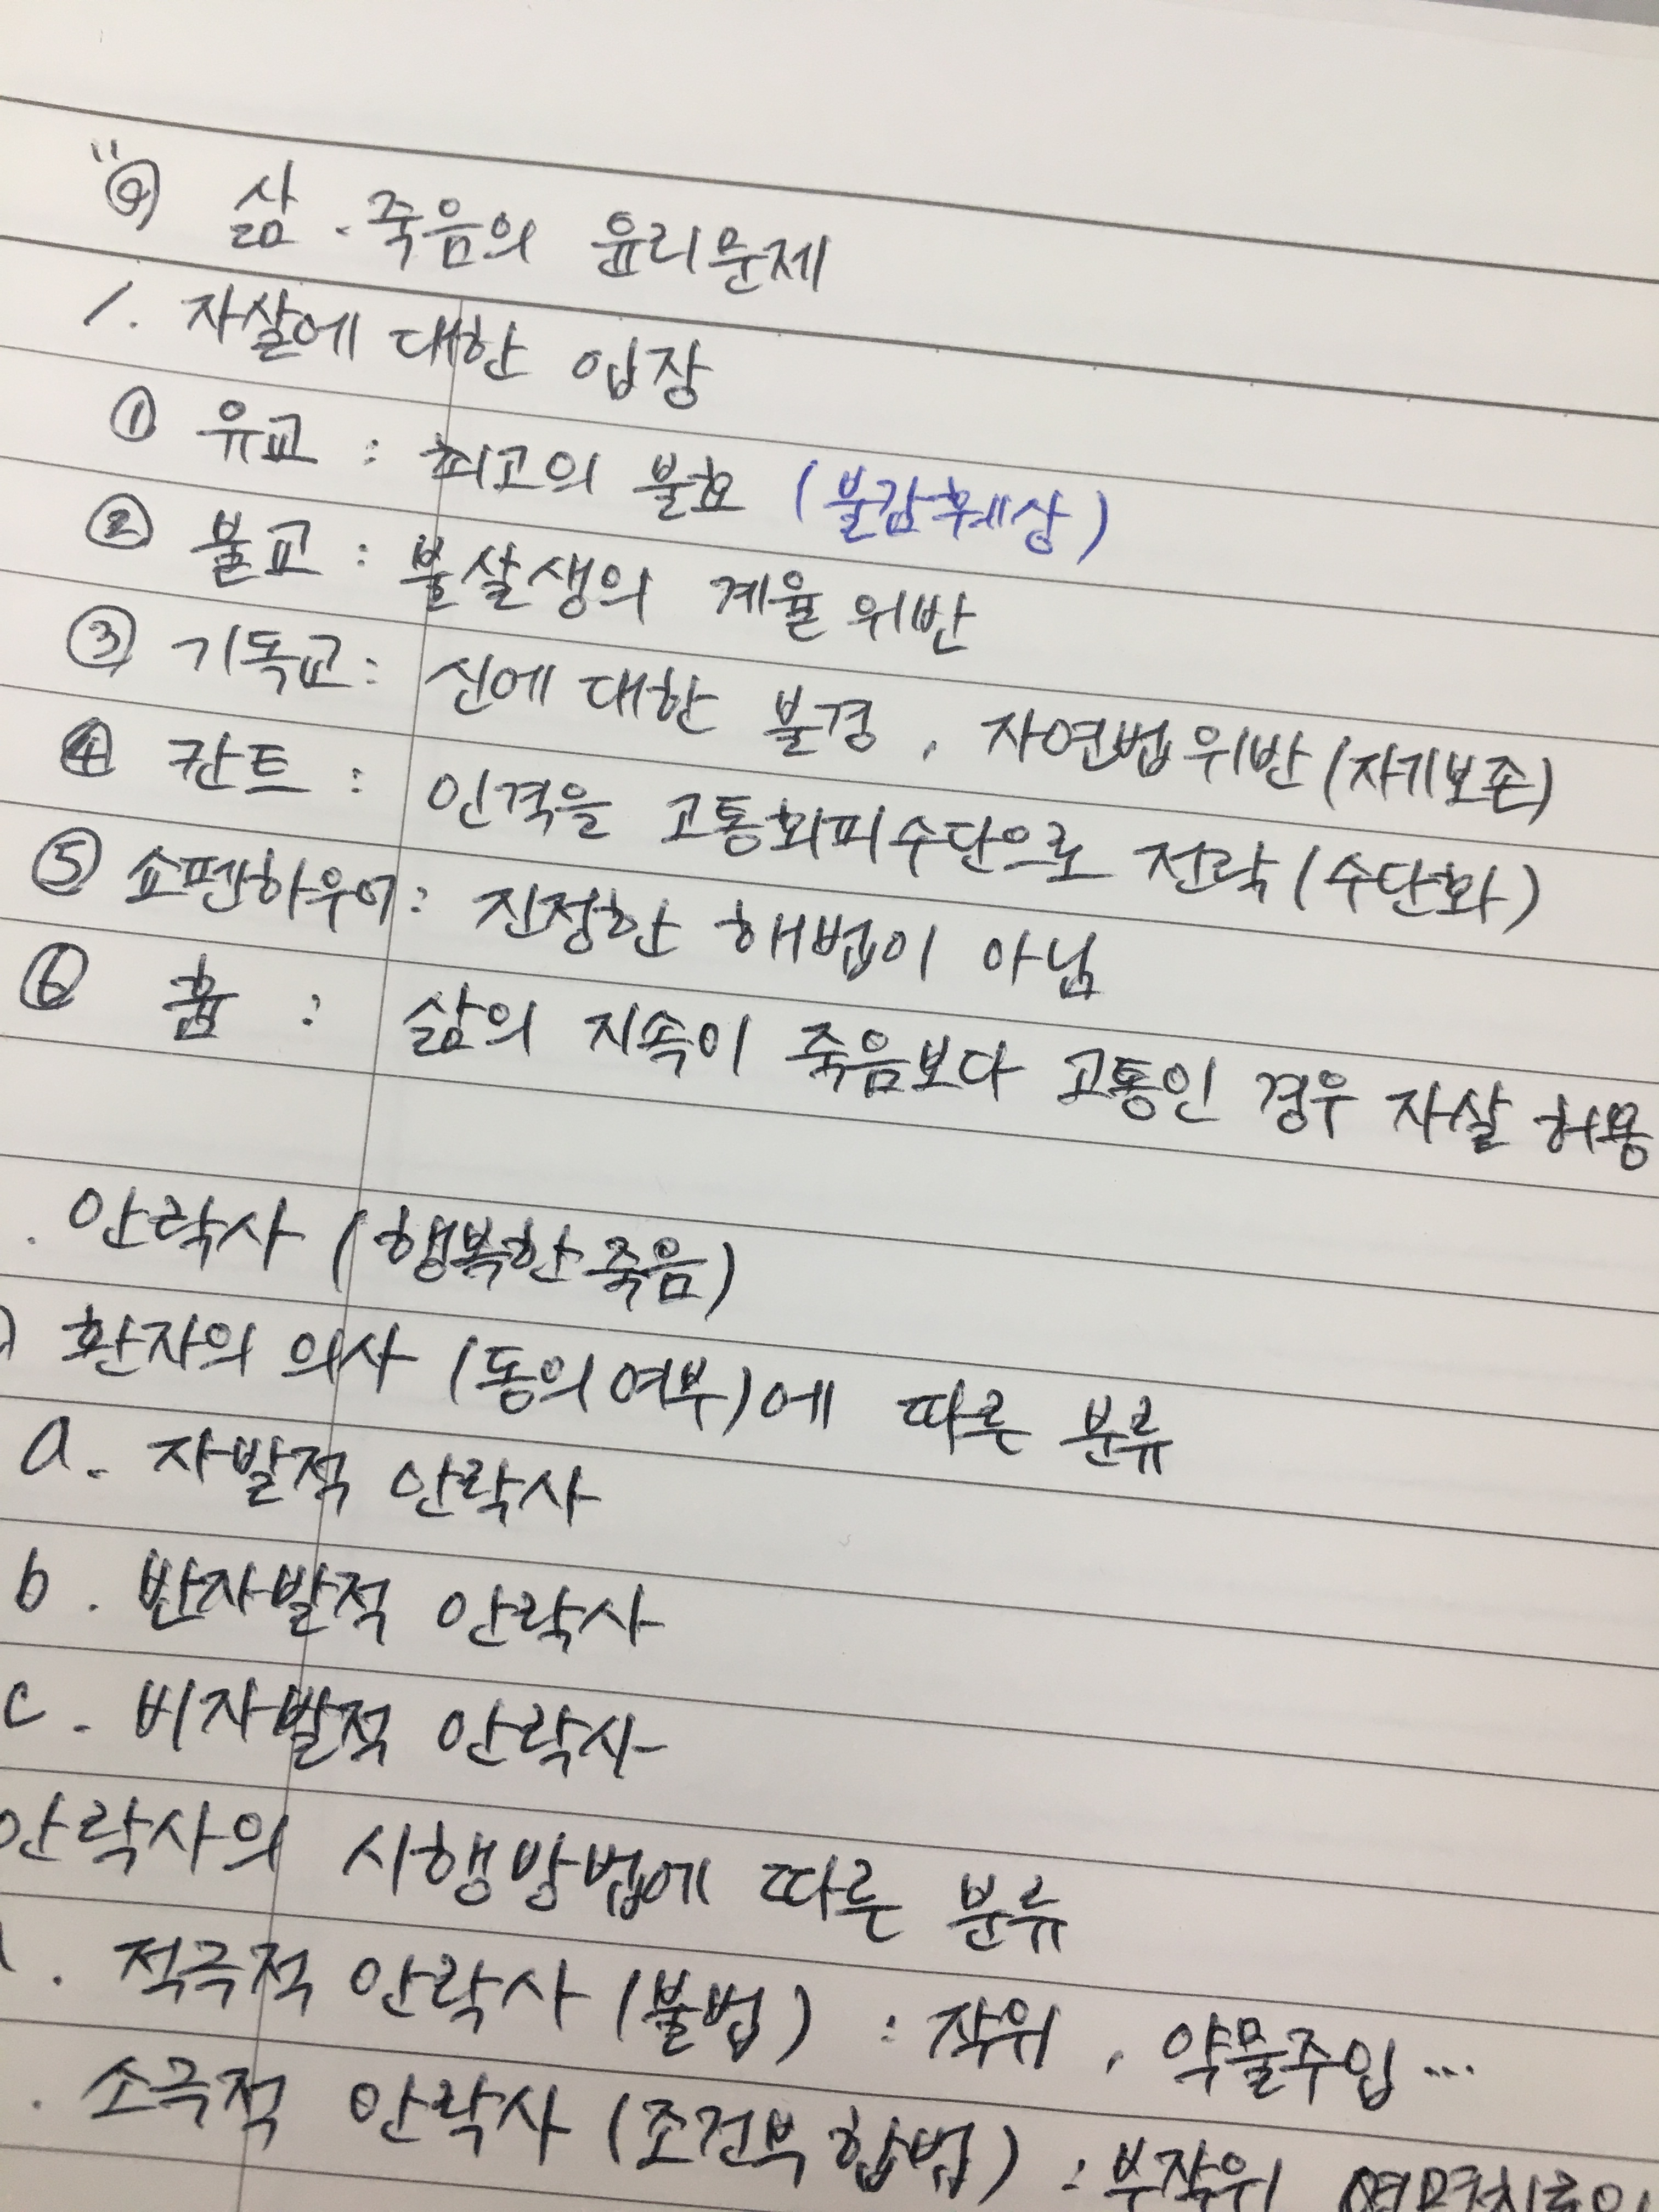 삶 · 죽음의 윤리문제
1. 자살에 대한 입장
① 유교 : 최고의 불효 (불감훼상)
② 불교 : 불살생의 계율 위반
③ 기독교 : 신에 대한 불경, 자연법 위반 (자기보존)
④ 칸트 : 인격을 고통회피수단으로 전락 (수단화)
⑤ 쇼펜하우어 : 진정한 해법이 아님
⑥ 흄 : 삶의 지속이 죽음보다 고통인 경우 자살 허용
. 안락사 (행복한 죽음)
) 환자의 의사 (동의여부)에 따른 분류
a. 자발적 안락사
b. 반자발적 안락사
c. 비자발적 안락사
안락사의 시행방법에 따른 분류
. 적극적 안락사 (불법) : 작위, 약물주입...
. 소극적 안락사 (조건부 합법) : 부작위